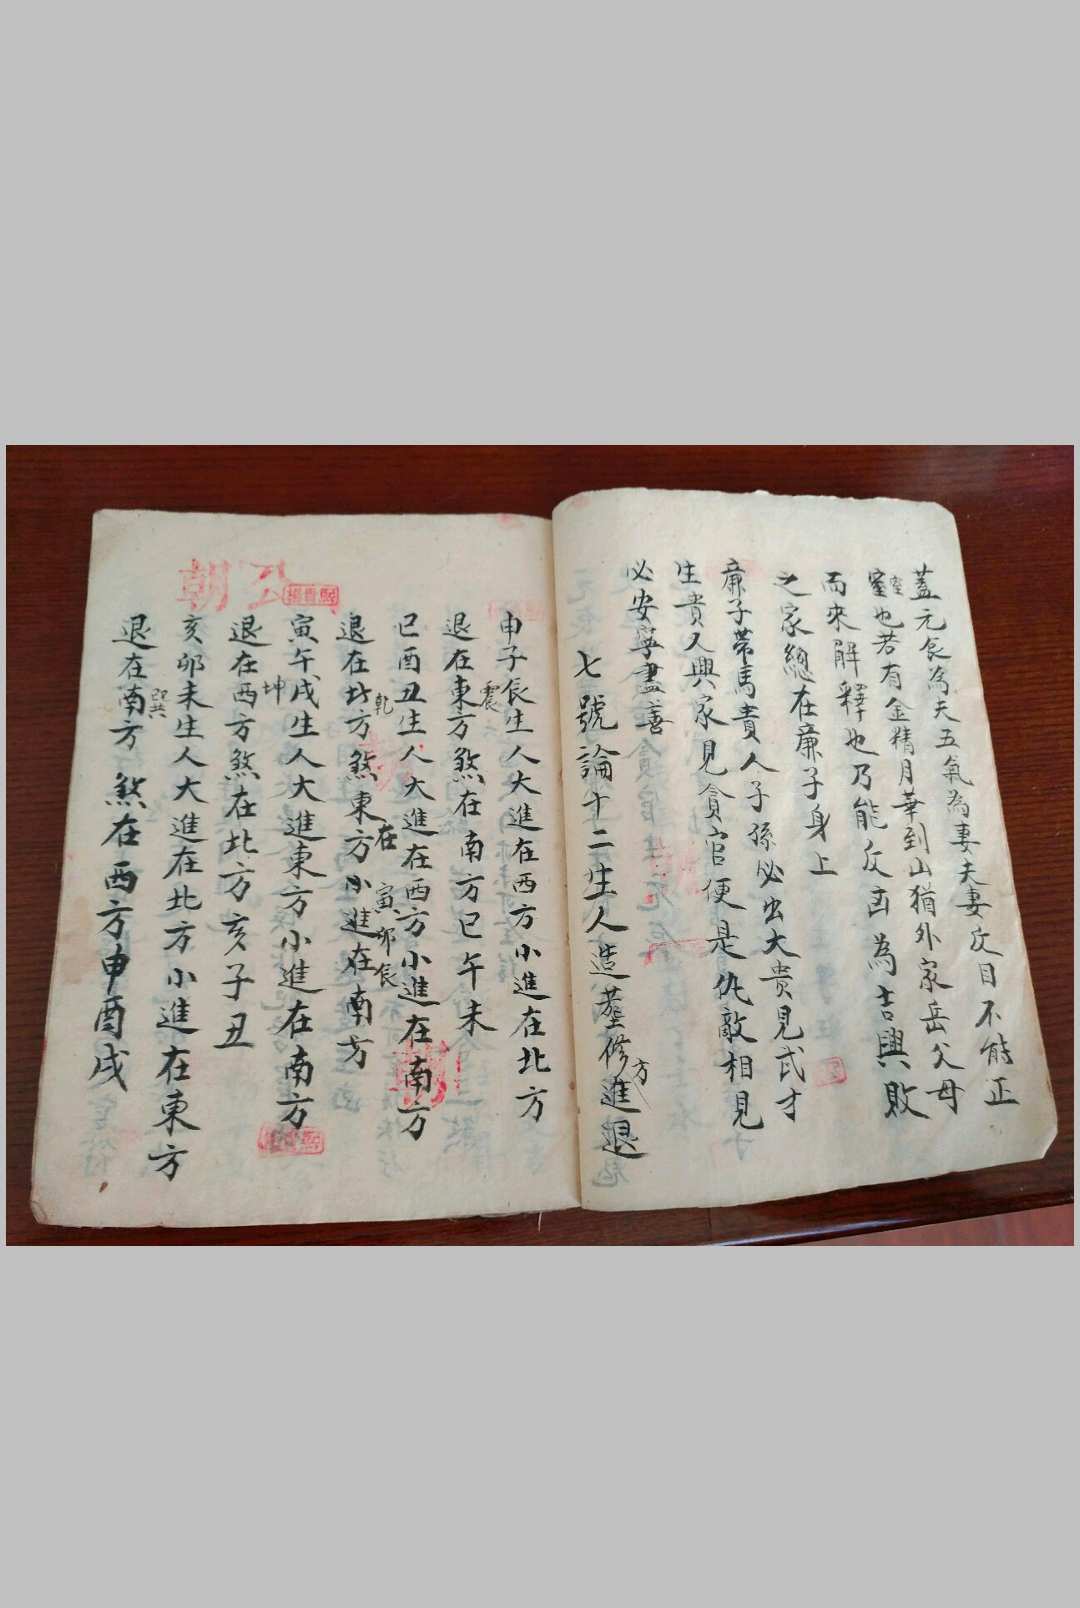 蓋元辰為夫五氣為妻夫妻反目不能正
室也若有金精月華到山猶外家岳父母
而來解釋也乃能反凶為吉興敗
之家總在廉子身上
廉子帶馬貴人子孫必出大貴見武才
生貴人興家見貪官便是仇敵相見
必安寧盡善
七號論十二生人造塟修方進退
申子辰生人大進在西方小進在北方
退在東方煞在南方巳午未
震
巳酉丑生人大進在西方小進在南方
退在北方煞在東方小進在南方
乾
寅卯辰
寅午戌生人大進東方小進在南方
退在西方煞在北方亥子丑
坤
亥卯未生人大進在北方小進在東方
退在南方煞在西方申酉戌
巽
朝公